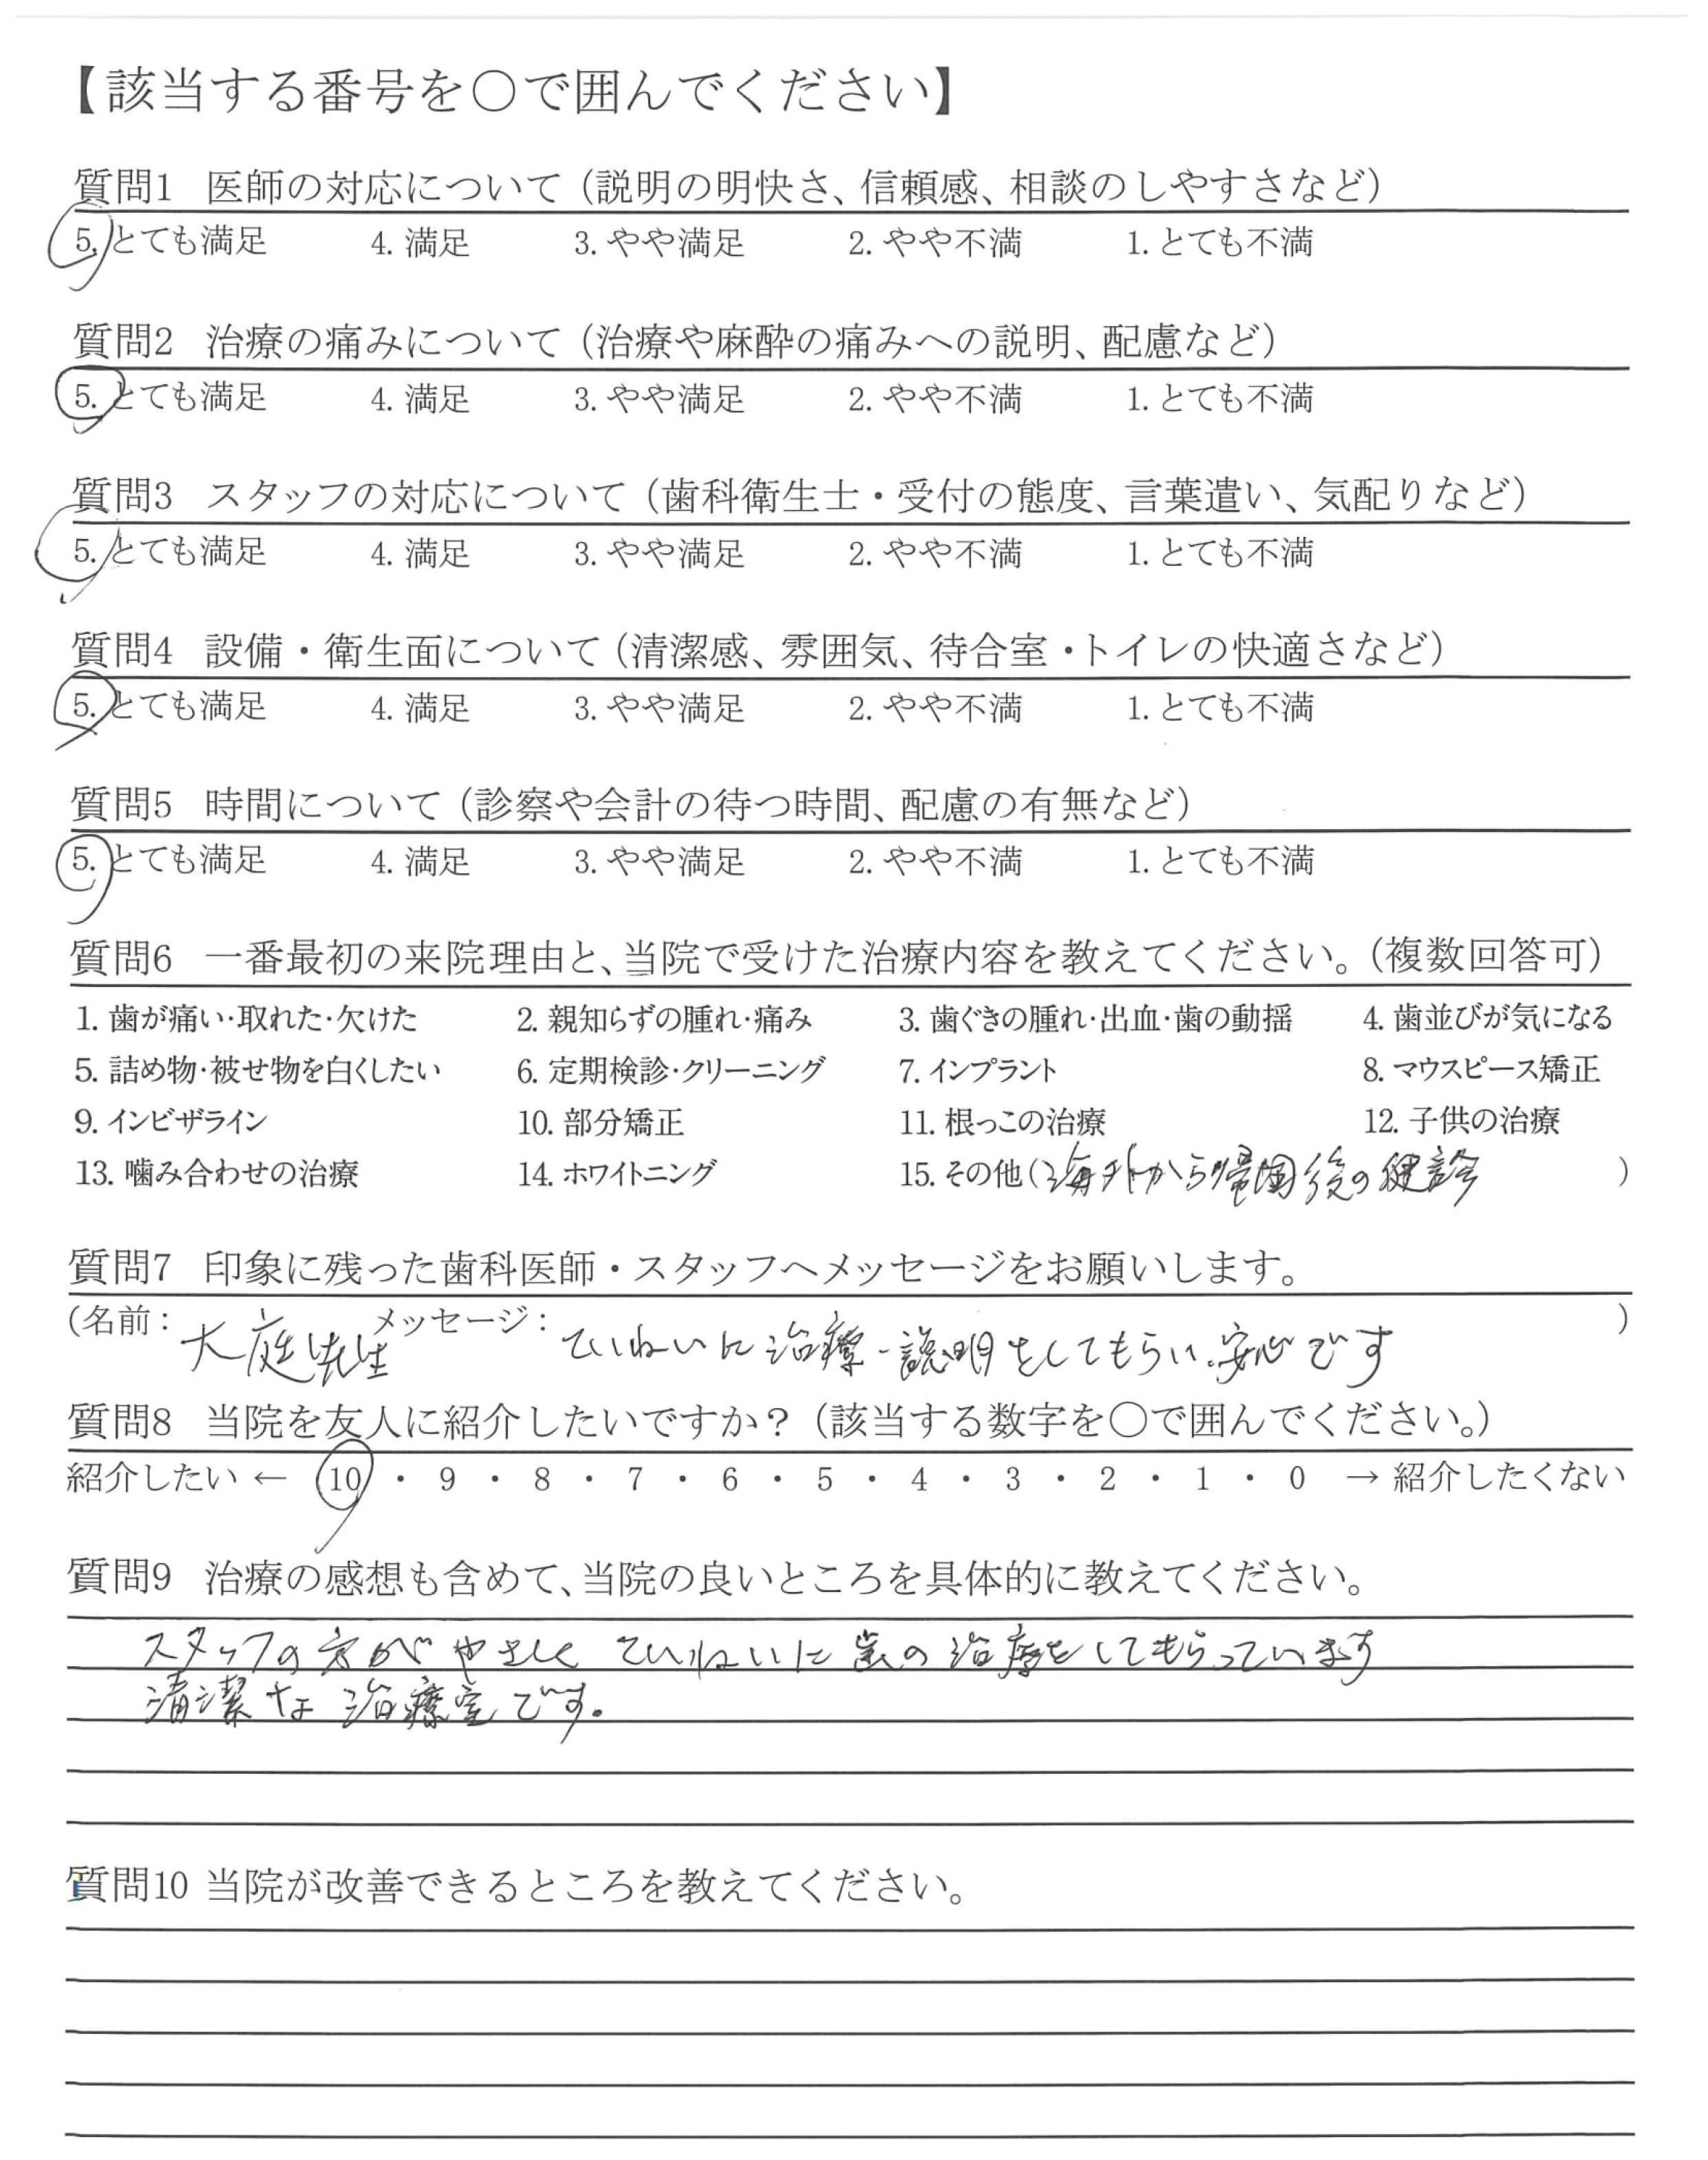 【該当する番号を〇で囲んでください】
質問1 医師の対応について（説明の明快さ、信頼感、相談のしやすさなど）
5. とても満足 4. 満足 3. やや満足 2. やや不満 1. とても不満
質問2 治療の痛みについて（治療や麻酔の痛みへの説明、配慮など）
5. とても満足 4. 満足 3. やや満足 2. やや不満 1. とても不満
質問3 スタッフの対応について（歯科衛生士・受付の態度、言葉遣い、気配りなど）
5. とても満足 4. 満足 3. やや満足 2. やや不満 1. とても不満
質問4 設備・衛生面について（清潔感、雰囲気、待合室・トイレの快適さなど）
5. とても満足 4. 満足 3. やや満足 2. やや不満 1. とても不満
質問5 時間について（診察や会計の待つ時間、配慮の有無など）
5. とても満足 4. 満足 3. やや満足 2. やや不満 1. とても不満
質問6 一番最初の来院理由と、当院で受けた治療内容を教えてください。（複数回答可）
1. 歯が痛い・取れた・欠けた 2. 親知らずの腫れ・痛み 3. 歯ぐきの腫れ・出血・歯の動揺 4. 歯並びが気になる
5. 詰め物・被せ物を白くしたい 6. 定期検診・クリーニング 7. インプラント 8. マウスピース矯正
9. インビザライン 10. 部分矯正 11. 根っこの治療 12. 子供の治療
13. 噛み合わせの治療 14. ホワイトニング 15. その他（海外から帰国後の健診）
質問7 印象に残った歯科医師・スタッフへメッセージをお願いします。
（名前：大庭先生 メッセージ：ていねいに治療・説明をしてもらい、安心です）
質問8 当院を友人に紹介したいですか？（該当する数字を〇で囲んでください。）
紹介したい ← 10 ・ 9 ・ 8 ・ 7 ・ 6 ・ 5 ・ 4 ・ 3 ・ 2 ・ 1 ・ 0 → 紹介したくない
質問9 治療の感想も含めて、当院の良いところを具体的に教えてください。
スタッフの方がやさしく ていねいに歯の治療をしてもらっています
清潔な治療室です。
質問10 当院が改善できるところを教えてください。